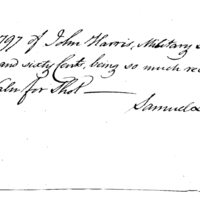 797 of John Harris, Military
and sixty Cents, being so much
for Shot —
Samuel